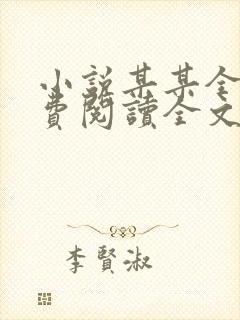 小説某某全
費閱讀全文
李賢淑